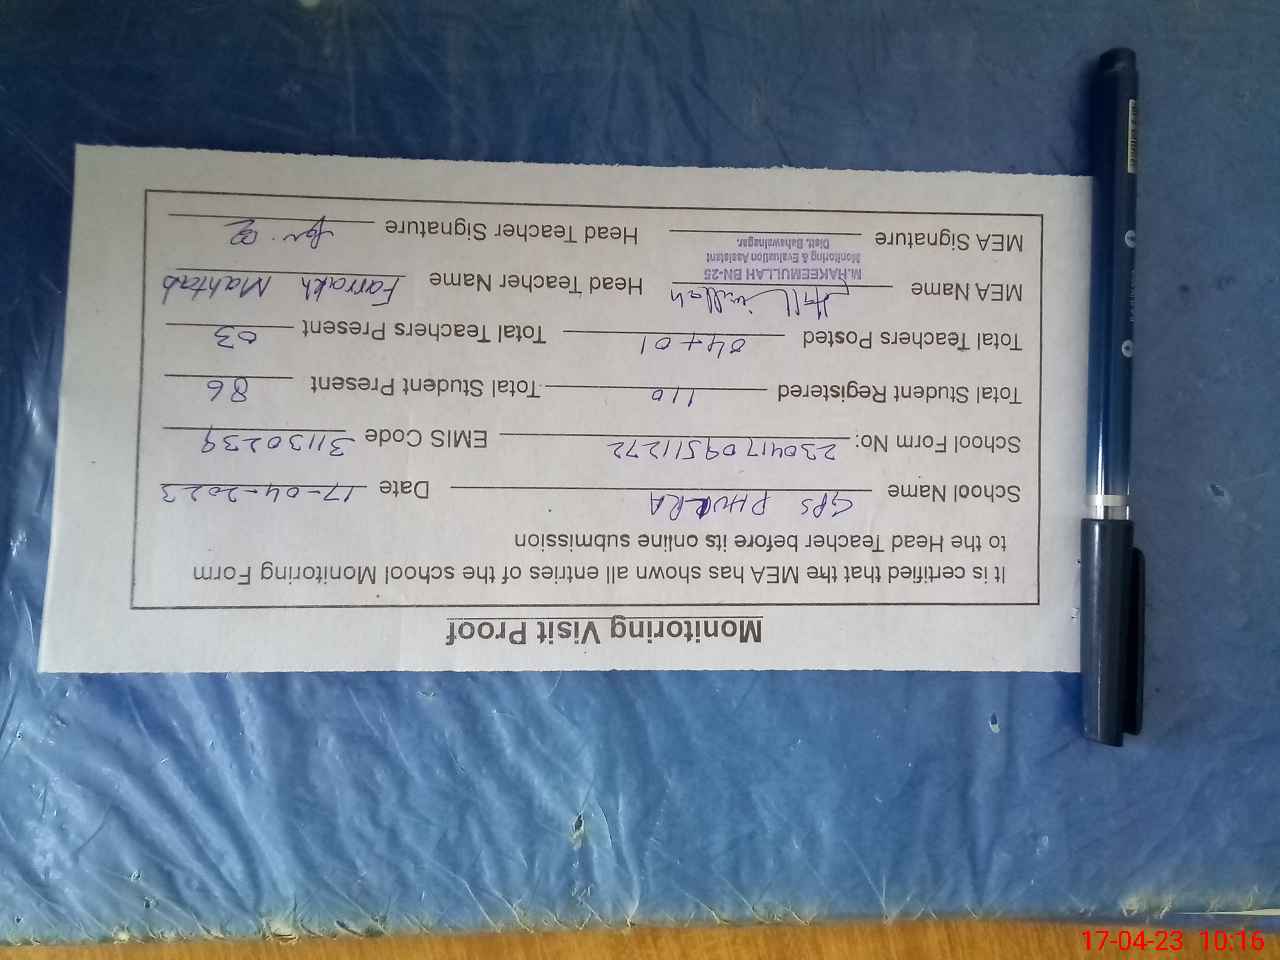 Monitoring Visit Proof
It is certified that the MEA has shown all entries of the school Monitoring Form
to the Head Teacher before its online submission
School Name GPS PHULRA Date 17-04-2023
School Form No: 23041709511272 EMIS Code 31130239
Total Student Registered 110 Total Student Present 86
Total Teachers Posted 04+01 Total Teachers Present 03
MEA Name Head Teacher Name Farrakh Mahtab
M.HAKEEMULLAH BN-25
Monitoring & Evaluation Assistant
Distt. Bahawalnagar.
MEA Signature Head Teacher Signature
17-04-23 10:16